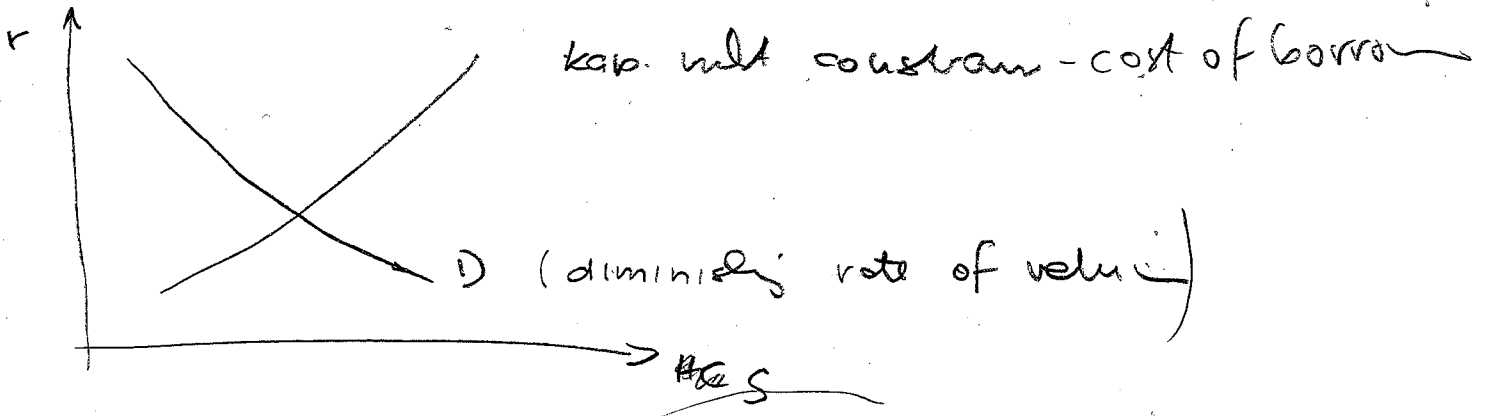 r
kap. mkt constrain - cost of borrow
D (diminishing rate of return)
S